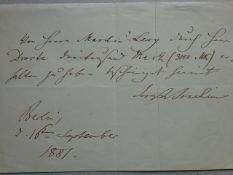 Von Herrn Martin Levy durch Herrn
Dreitausend Mark (3000 Mk) er-
halten zu haben bescheinigt hiermit
Joseph Joachim
Berlin,
d. 16ten September
1881.